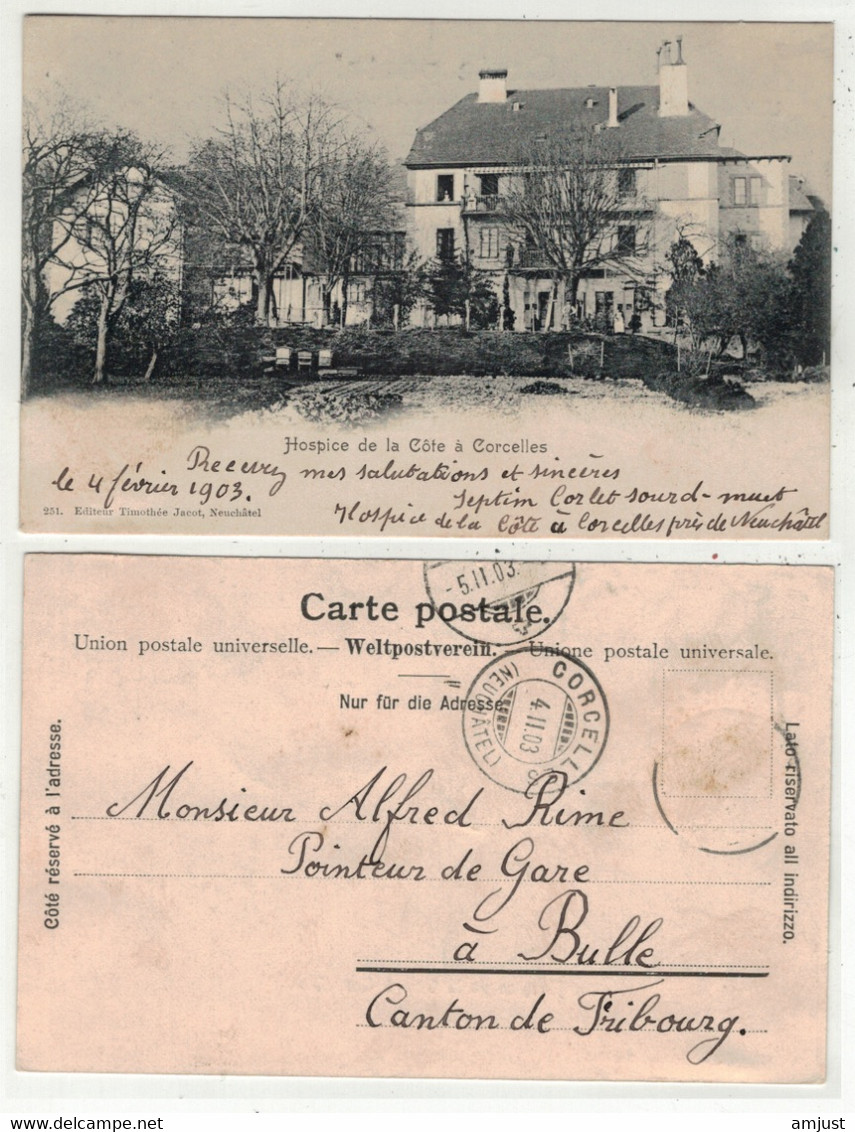 Hospice de la Côte à Corcelles
Recevez mes salutations et sincères
le 4 février 1903.
Septim Corlet sourd-muet
251. Editeur Timothée Jacot, Neuchâtel
Hospice de la Côte à Corcelles près de Neuchâtel
-5.II.03.-
Carte postale.
Union postale universelle. — Weltpostverein. — Unione postale universale.
Nur für die Adresse
CORCELLES
(NEUCHÂTEL)
4.II.03
Côté réservé à l'adresse.
Lato riservato all indirizzo.
Monsieur Alfred Rime
Pointeur de Gare
à Bulle
Canton de Fribourg.
delcampe.net
amjust